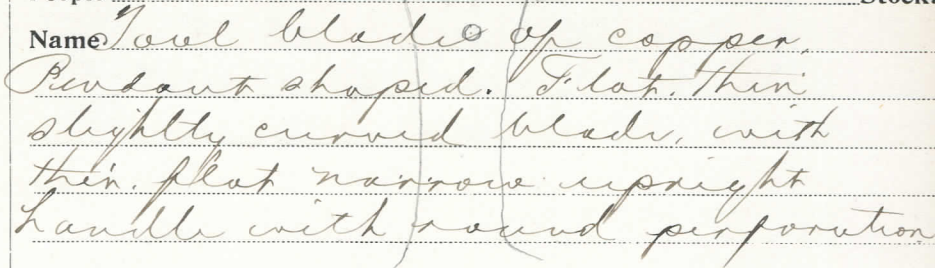 Name Towl blade of copper.
Pendant shaped. Flat. thin
slightly curved blade, with
thin. flat narrow upright
handle with round perforation